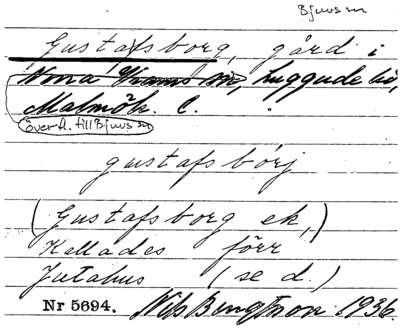 Bjuvs sn
Gustafsborg, gård i
Norra Vrams sn, Luggude hd,
Malmöh. l.
överfl. till Bjuvs sn
gustafsbórj
(Gustafsborg ek,)
Kallades förr
Jutahus (se d.)
Nr 5694. Nils Bengtsson 1936.